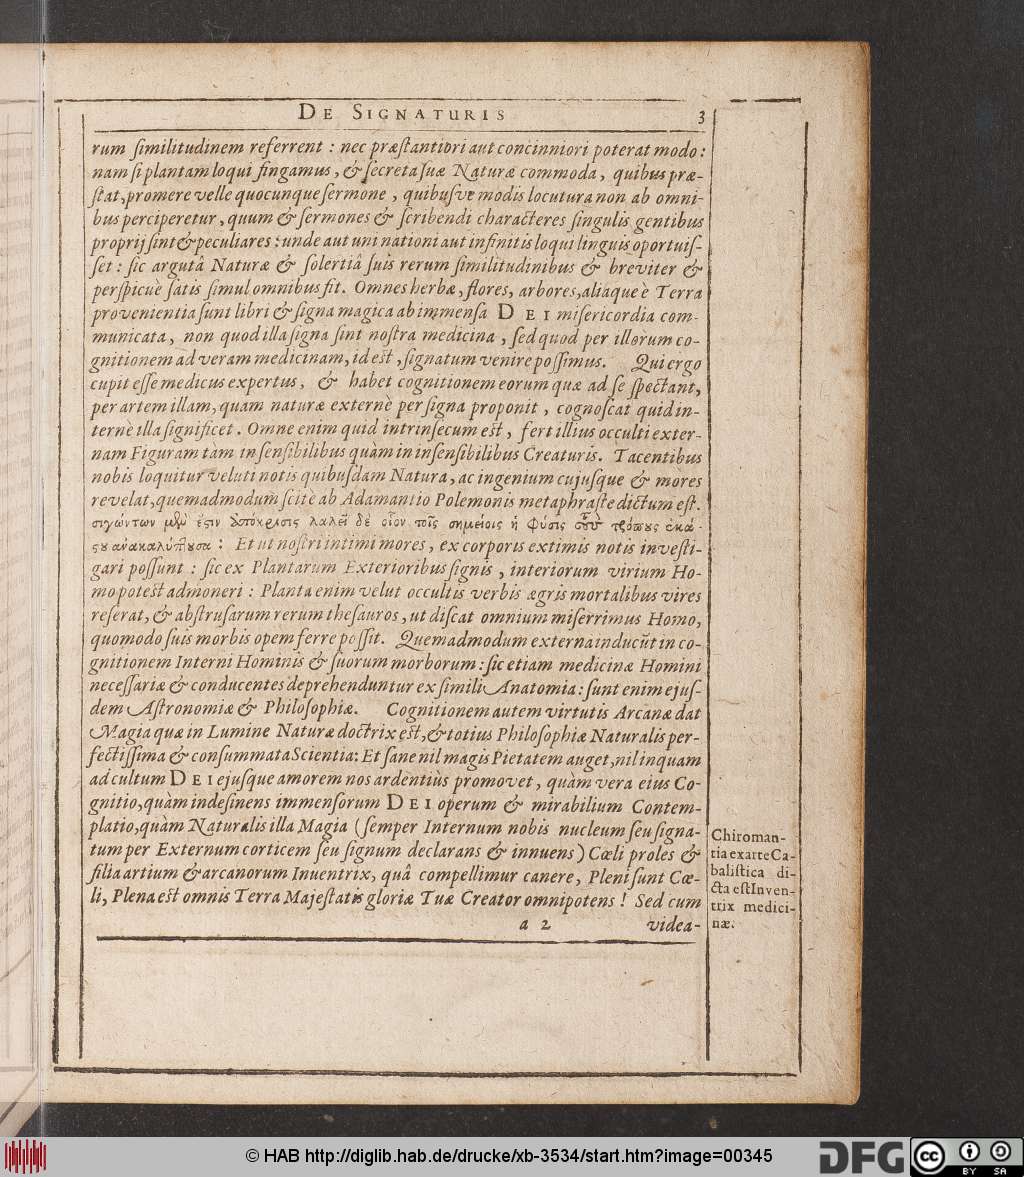 De Signaturis 3
rum ſimilitudinem referrent : nec præſtantiori aut concinniori poterat modo :
nam ſi plantam loqui fingamus, & ſecreta ſuæ Naturæ commoda, quibus præ-
ſtat, promere velle quocunque ſermone, quibuſve modis locutura non ab omni-
bus perciperetur, quum & ſermones & ſcribendi characteres ſingulis gentibus
proprij ſint & peculiares : unde aut uni nationi aut infinitis loqui linguis oportuiſ-
ſet : ſic argutâ Naturæ & ſolertiâ ſuis rerum ſimilitudinibus & breviter &
perſpicuè ſatis ſimul omnibus fit. Omnes herbæ, flores, arbores, aliaque è Terra
provenientia ſunt libri & ſigna magica ab immenſa Dei miſericordia com-
municata, non quod illa ſigna ſint noſtra medicina, ſed quod per illorum co-
gnitionem ad veram medicinam, id eſt, ſignatum venire poſſimus. Qui ergo
cupit eſſe medicus expertus, & habet cognitionem eorum quæ ad ſe ſpectant,
per artem illam, quam naturæ externè per ſigna proponit, cognoſcat quid in-
ternè illa ſignificet. Omne enim quid intrinſecum eſt, fert illius occulti exter-
nam Figuram tam in ſenſibilibus quàm in inſenſibilibus Creaturis. Tacentibus
nobis loquitur veluti notis quibuſdam Natura, ac ingenium cujuſque & mores
revelat, quemadmodum ſcitè ab Adamantio Polemonis metaphraſte dictum eſt.
σιγώντων μὲν ἐστιν ὑπόκρισις λαλεῖ δὲ οἷον τοῖς σημείοις ἡ φύσις τοὺς τρόπους ἑκά-
στου ἀνακαλύπτουσα : Et ut noſtri intimi mores, ex corporis extimis notis inveſti-
gari poſſunt : ſic ex Plantarum Exterioribus ſignis, interiorum virium Ho-
mo poteſt admoneri : Planta enim velut occultis verbis ægris mortalibus vires
reſerat, & abſtruſarum rerum theſauros, ut diſcat omnium miſerrimus Homo,
quomodo ſuis morbis opem ferre poſſit. Quemadmodum externa inducũt in co-
gnitionem Interni Hominis & ſuorum morborum : ſic etiam medicinæ Homini
neceſſariæ & conducentes deprehenduntur ex ſimili Anatomia : ſunt enim ejuſ-
dem Aſtronomiæ & Philoſophiæ. Cognitionem autem virtutis Arcanæ dat
Magia quæ in Lumine Naturæ doctrix eſt, & totius Philoſophiæ Naturalis per-
fectiſſima & conſummata Scientia: Et ſane nil magis Pietatem auget, nil inquam
ad cultum Dei ejuſque amorem nos ardentiùs promovet, quàm vera eius Co-
gnitio, quàm indeſinens immenſorum Dei operum & mirabilium Contem-
platio, quàm Naturalis illa Magia (ſemper Internum nobis nucleum ſeu ſigna-
tum per Externum corticem ſeu ſignum declarans & innuens) Cœli proles &
filia artium & arcanorum Inuentrix, quâ compellimur canere, Pleni ſunt Cœ-
li, Plena eſt omnis Terra Majeſtatis gloriæ Tuæ Creator omnipotens ! Sed cum
a 2 videa-
Chiroman-
tia ex arte Ca-
baliſtica di-
cta eſt Inven-
trix medici-
næ.
© HAB http://diglib.hab.de/drucke/xb-3534/start.htm?image=00345
DFG
cc BY SA